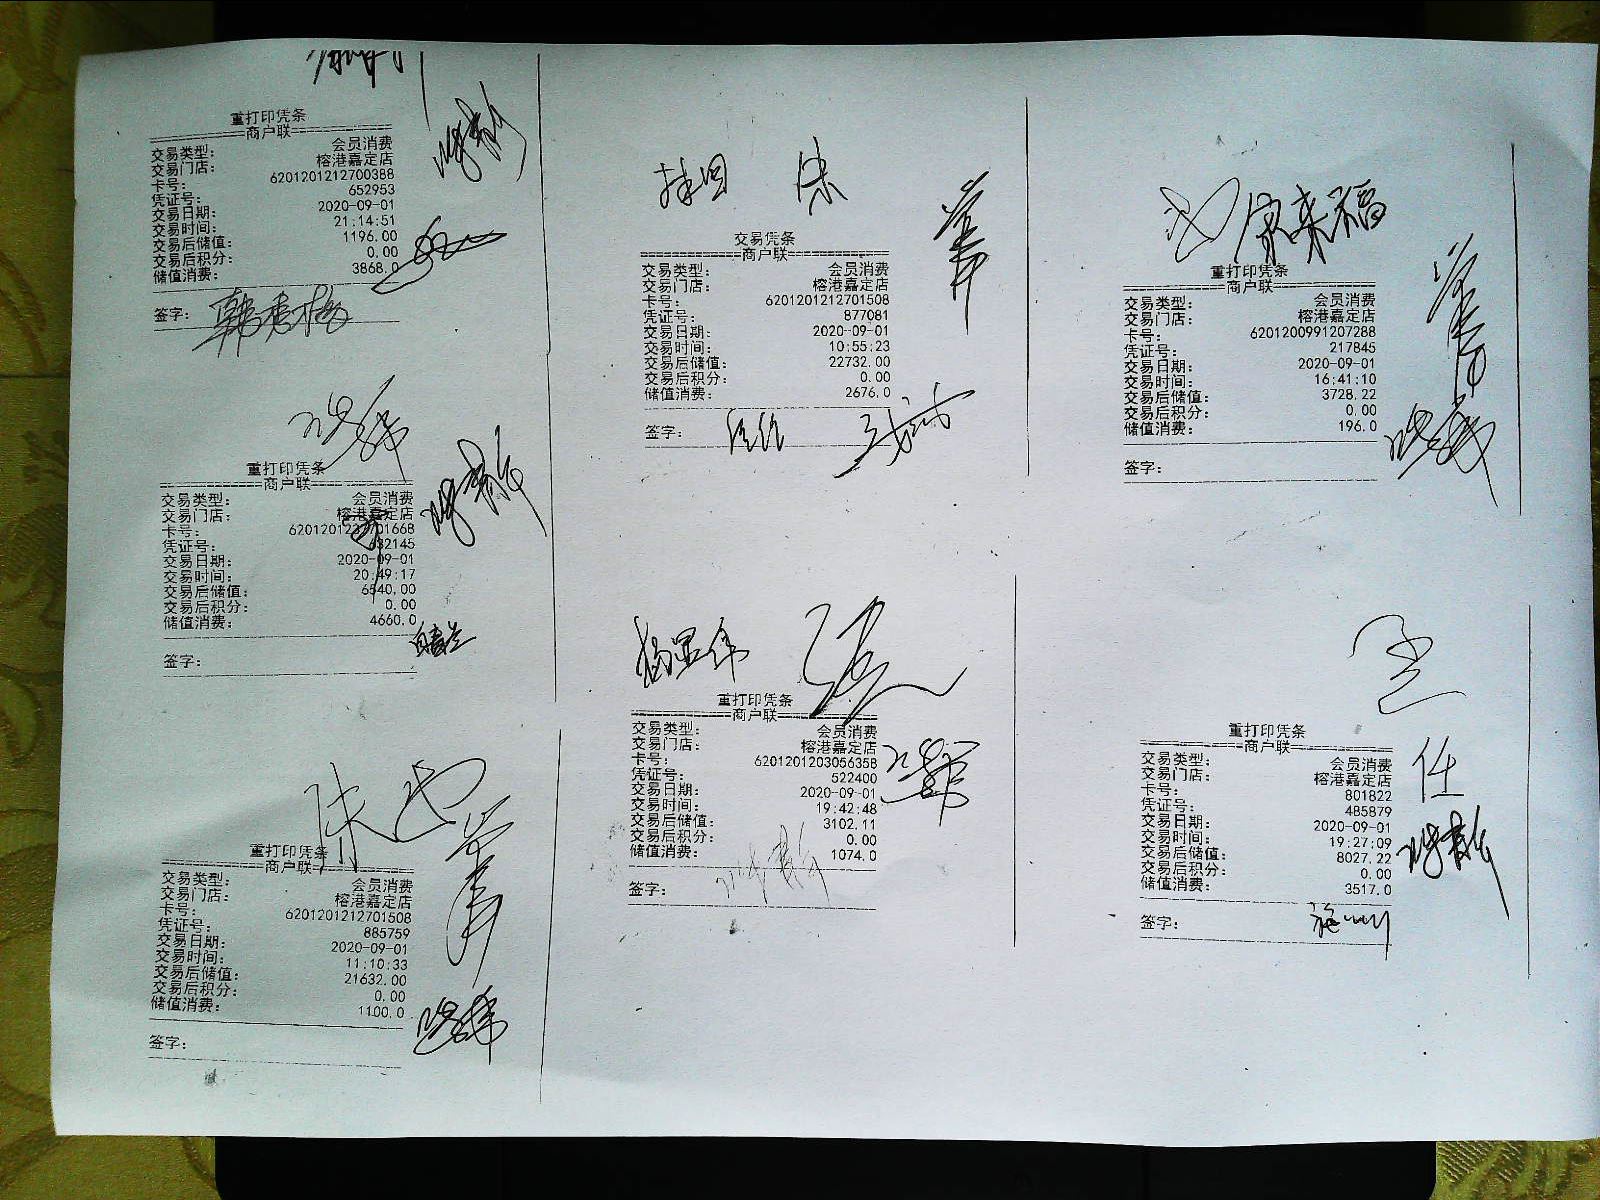 重打印凭条
商户联
交易类型： 会员消费
交易门店： 榕港嘉定店
卡号： 6201201212700388
凭证号： 652953
交易日期： 2020-09-01
交易时间： 21:14:51
交易后储值： 1196.00
交易后积分： 0.00
储值消费： 3868.0
签字： 韩素梅
重打印凭条
商户联
交易类型： 会员消费
交易门店： 榕港嘉定店
卡号：
凭证号：
交易日期： 2020-09-01
交易时间： 20:49:17
交易后储值： 6540.00
交易后积分： 0.00
储值消费： 4660.0
签字：
陈
重打印凭条
商户联
交易类型： 会员消费
交易门店： 榕港嘉定店
卡号： 6201201212701508
凭证号： 885759
交易日期： 2020-09-01
交易时间： 11:10:33
交易后储值： 21632.00
交易后积分： 0.00
储值消费： 1100.0
签字：
交易凭条
商户联
交易类型： 会员消费
交易门店： 榕港嘉定店
卡号： 6201201212701508
凭证号： 877081
交易日期： 2020-09-01
交易时间： 10:55:23
交易后储值： 22732.00
交易后积分： 0.00
储值消费： 2676.0
签字：
杨显伟 张
重打印凭条
商户联
交易类型： 会员消费
交易门店： 榕港嘉定店
卡号： 6201201203056358
凭证号： 522400
交易日期： 2020-09-01
交易时间： 19:42:48
交易后储值： 3102.11
交易后积分： 0.00
储值消费： 1074.0
签字：
家来福
重打印凭条
商户联
交易类型： 会员消费
交易门店： 榕港嘉定店
卡号： 6201200991207288
凭证号： 217845
交易日期： 2020-09-01
交易时间： 16:41:10
交易后储值： 3728.22
交易后积分： 0.00
储值消费： 196.0
签字：
重打印凭条
商户联
任
交易类型： 会员消费
交易门店： 榕港嘉定店
卡号： 801822
凭证号： 485879
交易日期： 2020-09-01
交易时间： 19:27:09
交易后储值： 8027.22
交易后积分： 0.00
储值消费： 3517.0
签字：